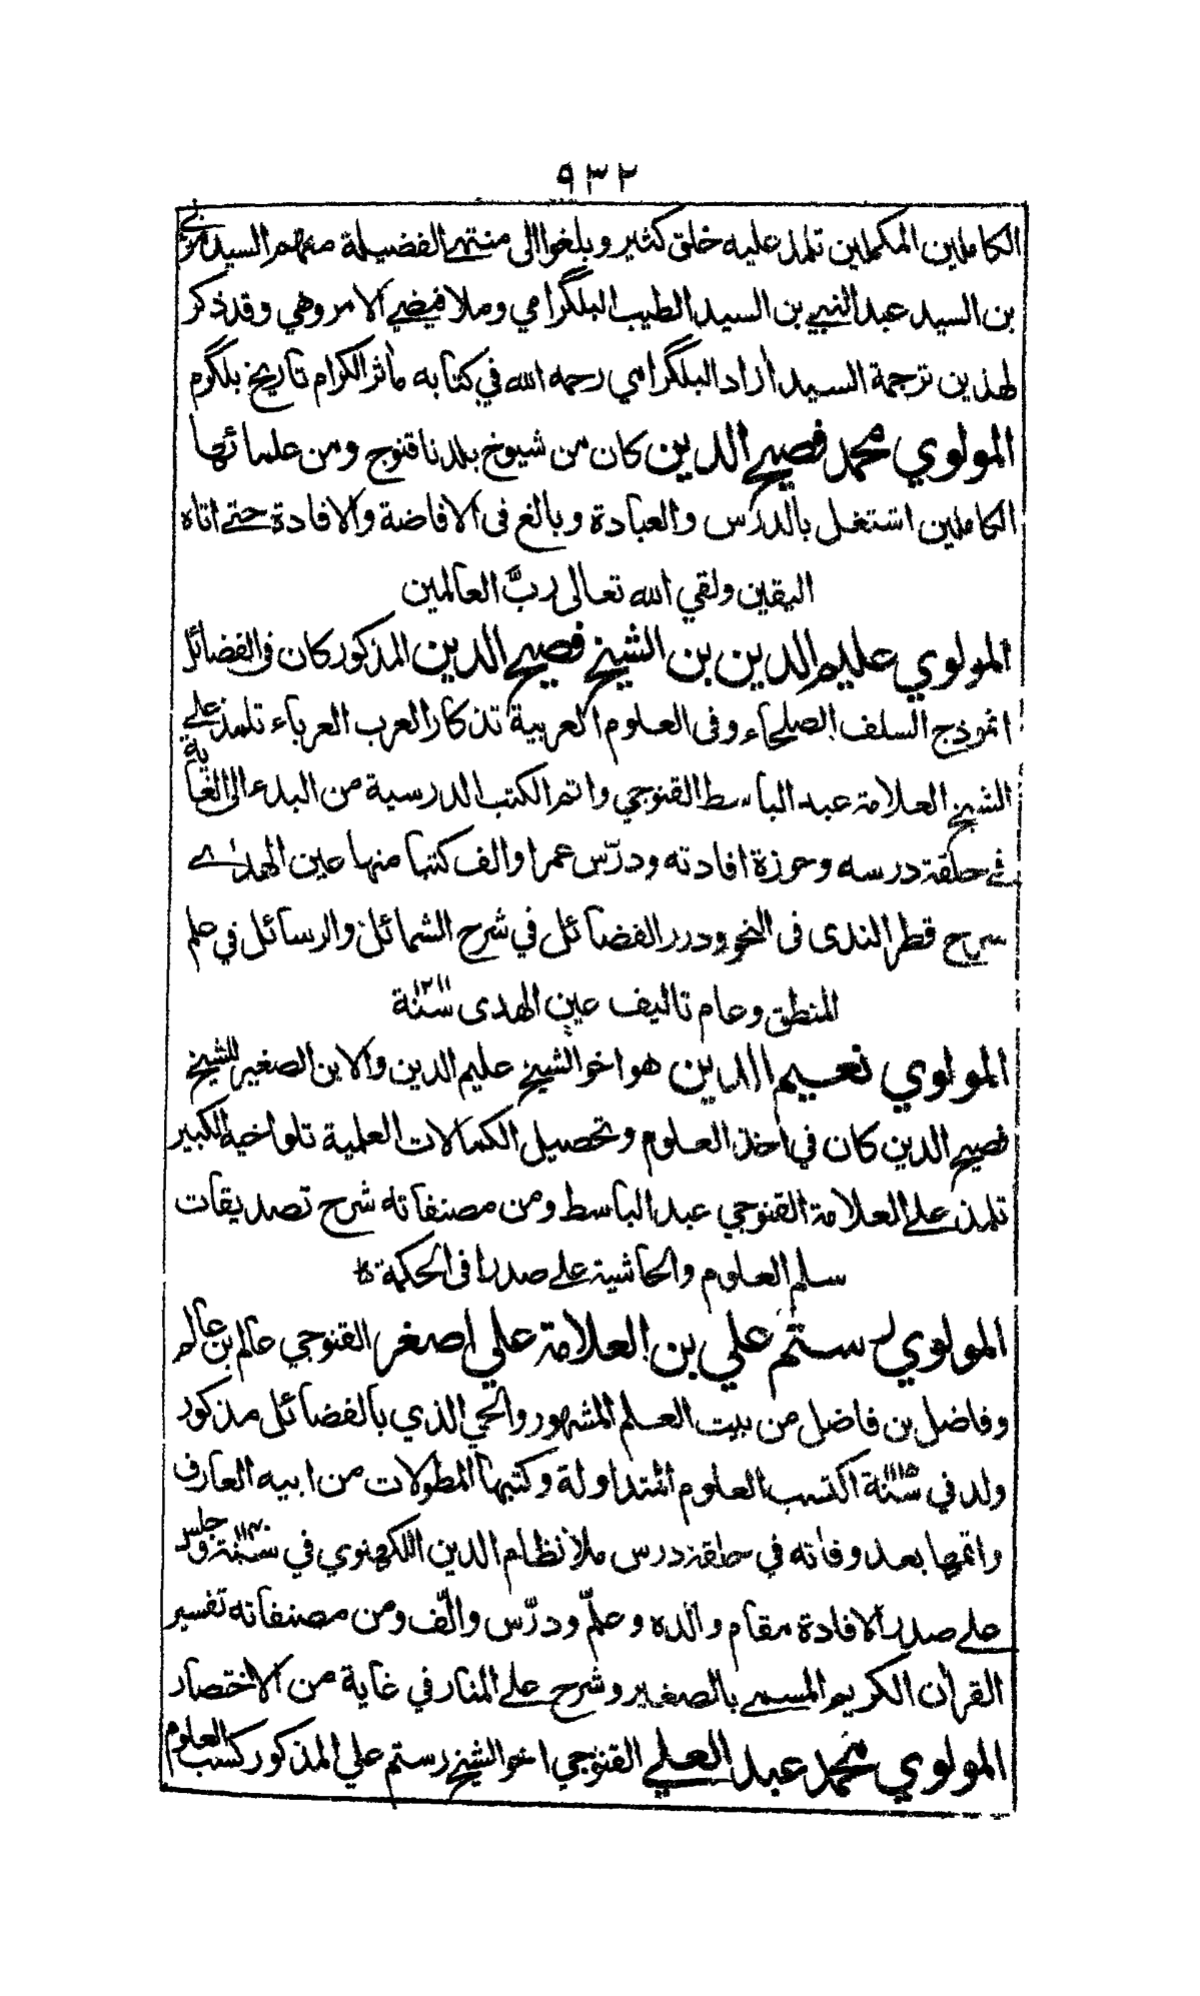 ٩٣٢
الكاملين المكملين تلمذ عليه خلق كثير وبلغوا الى منتهى الفضيلة منهم السيد
بن السيد عبد النبي بن السيد الطيب البلگرامي وملا فيضي الامروهي وقد ذكر
لهذين ترجمة السيد ازاد البلگرامي رحمه الله في كتابه مآثر الكرام تاريخ بلگرم
المولوي محمد فصيح الدين كان من شيوخ بلدنا قنوج ومن علمائها
الكاملين اشتغل بالدرس والعبادة وبالغ فى الافاضة والافادة حتى اتاه
اليقين ولقي الله تعالى ربَّ العالمين
المولوي عليم الدين بن الشيخ فصيح الدين المذكور كان فى الفضائل
انموذج السلف الصلحاء وفى العلوم العربية تذكار العرب العرباء تلمذ على
الشيخ العلامة عبد الباسط القنوجي واتم الكتب الدرسية من البدء الى الغاية
في حلقة درسه وحوزة افادته ودرّس عمرا والف كتبا منها عين الهدى
شرح قطر الندى فى النحو ودرر الفضائل في شرح الشمائل والرسائل في علم
المنطق وعام تاليف عين الهدى سنة ١٢١١
المولوي نعيم الدين هو اخو الشيخ عليم الدين والابن الصغير للشيخ
فصيح الدين كان في اخذ العلوم وتحصيل الكمالات العلمية تلو اخيه الكبير
تلمذ على العلامة القنوجي عبد الباسط ومن مصنفاته شرح تصديقات
سلم العلوم والحاشية على صدرا فى الحكمة
المولوي رستم علي بن العلامة علي اصغر القنوجي عالم بن عالم
وفاضل بن فاضل من بيت العلم المشهور والحي الذي بالفضائل مذكور
ولد في سنة ١١١٥ اكتسب العلوم المتداولة وكتبها المطولات من ابيه العارف
واتمها بعد وفاته في حلقة درس ملا نظام الدين اللكهنوي في سنة ١١٤٠ وجلس
على صدر الافادة مقام والده وعلّم ودرّس والّف ومن مصنفاته تفسير
القران الكريم المسمى بالصغير وشرح على المنار في غاية من الاختصار
المولوي محمد عبد العلي القنوجي اخو الشيخ رستم علي المذكور كسب العلوم